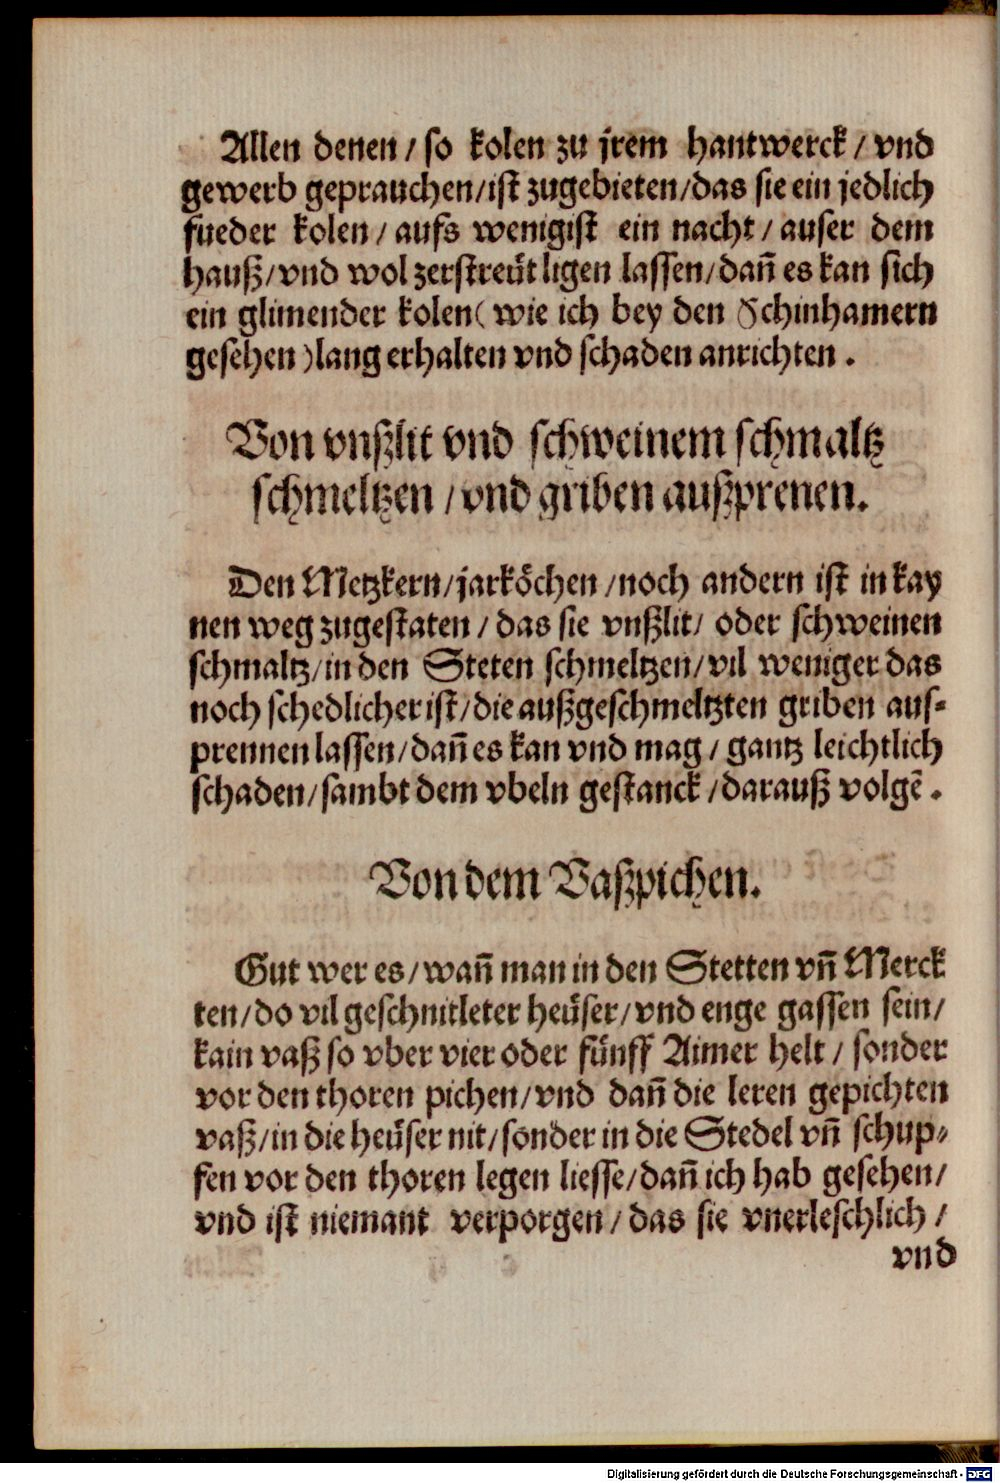 Allen denen / so kolen zu jrem hantwerck / vnd
gewerb geprauchen/ist zugebieten/das sie ein jedlich
fueder kolen / aufs wenigist ein nacht / auser dem
hauß/vnd wol zerstreüt ligen lassen/dañ es kan sich
ein glimender kolen( wie ich bey den Schinhamern
gesehen )lang erhalten vnd schaden anrichten .
Von vnßlit vnd schweinem schmaltz
schmeltzen / vnd griben außprenen.
Den Metzkern/jarköchen /noch andern ist in kay
nen weg zugestaten / das sie vnßlit/ oder schweinen
schmaltz/in den Steten schmeltzen/vil weniger das
noch schedlicher ist/die außgeschmeltzten griben aus-
prennen lassen/dañ es kan vnd mag / gantz leichtlich
schaden/sambt dem vbeln gestanck /darauß volgē .
Von dem Vaßpichen.
Gut wer es/wañ man in den Stetten vñ Merck
ten/do vil geschnitleter heüser/vnd enge gassen sein/
kain vaß so vber vier oder fünff Aimer helt / sonder
vor den thoren pichen/vnd dañ die leren gepichten
vaß/in die heüser nit/sonder in die Stedel vñ schup-
fen vor den thoren legen liesse/dañ ich hab gesehen/
vnd ist niemant verporgen/ das sie vnerleschlich /
vnd
Digitalisierung gefördert durch die Deutsche Forschungsgemeinschaft - DFG